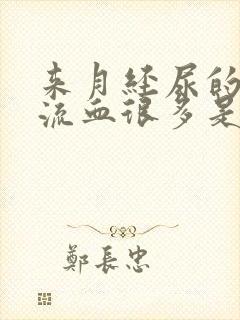 来月经尿的
流血很多是
鄭長忠